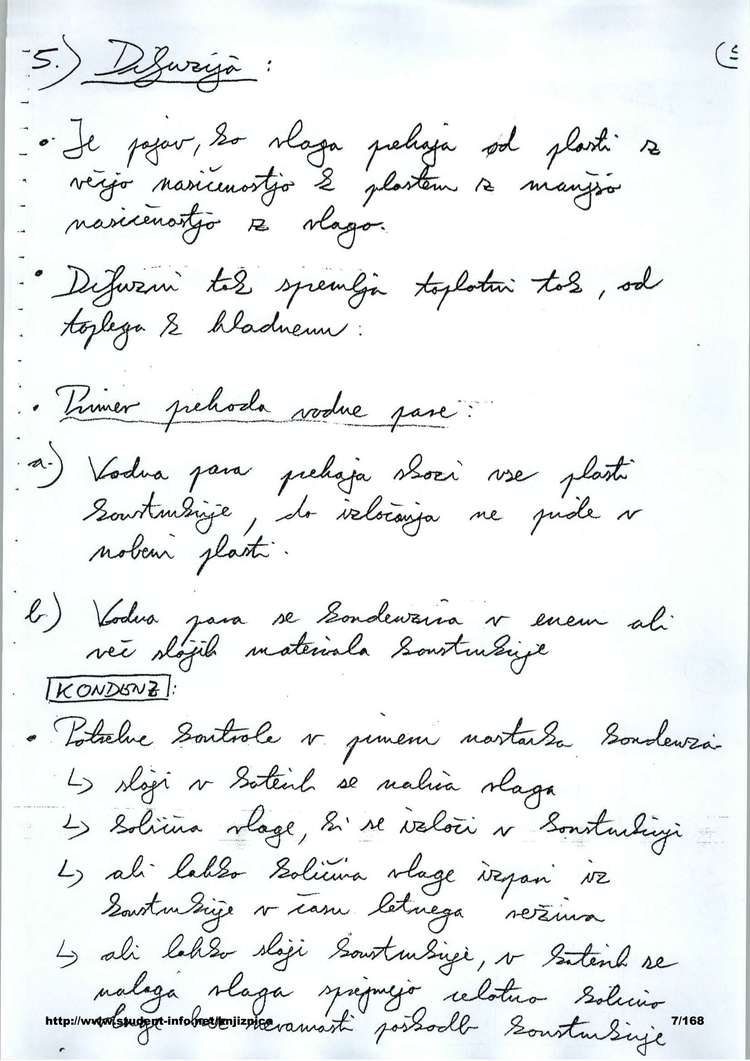 5.) Difuzija :
• Je pojav, ko vlaga prehaja od plasti z
večjo nasičenostjo k plastem z manjšo
nasičenostjo z vlago.
• Difuzni tok spremlja toplotni tok, od
toplega k hladnemu :
• Primer prehoda vodne pare :
a.) Vodna para prehaja skozi vse plasti
konstrukcije, do izločanja ne pride v
nobeni plasti.
b) Vodna para se kondenzira v enem ali
več slojih materiala konstrukcije
KONDENZ :
• Potrebne kontrole v primeru nastanka kondenza
↳ sloji v katerih se nabira vlaga
↳ količina vlage, ki se izloči v konstrukciji
↳ ali lahko količina vlage izpari iz
konstrukcije v času letnega režima
↳ ali lahko sloji konstrukcije, v katerih se
nalaga vlaga sprejmejo celotno količino
vlage brez nevarnosti poškodb konstrukcije
http://www.student-info.net/knjiznica
7/168